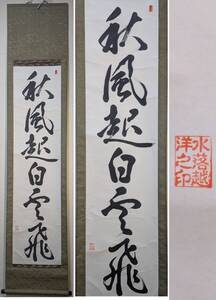 秋風起白雲飛
秋風起白雲飛
水落越
洋之印